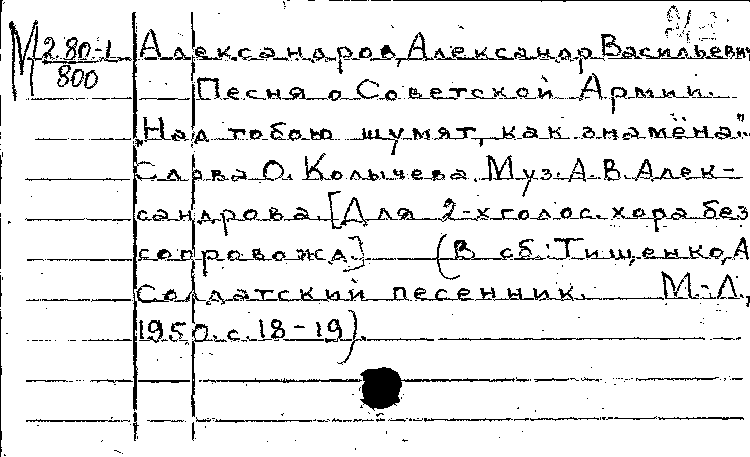 М 280-1
800
Александров, Александр Васильевич
Песня о Советской Армии.
„Над тобою шумят, как знамёна".
Слова О. Колычева. Муз. А. В. Алек-
сандрова. [Для 2-х голос. хора без
сопровожд.] (В сб.: Тищенко, А
Солдатский песенник. М.-Л.,
1950. с. 18-19).